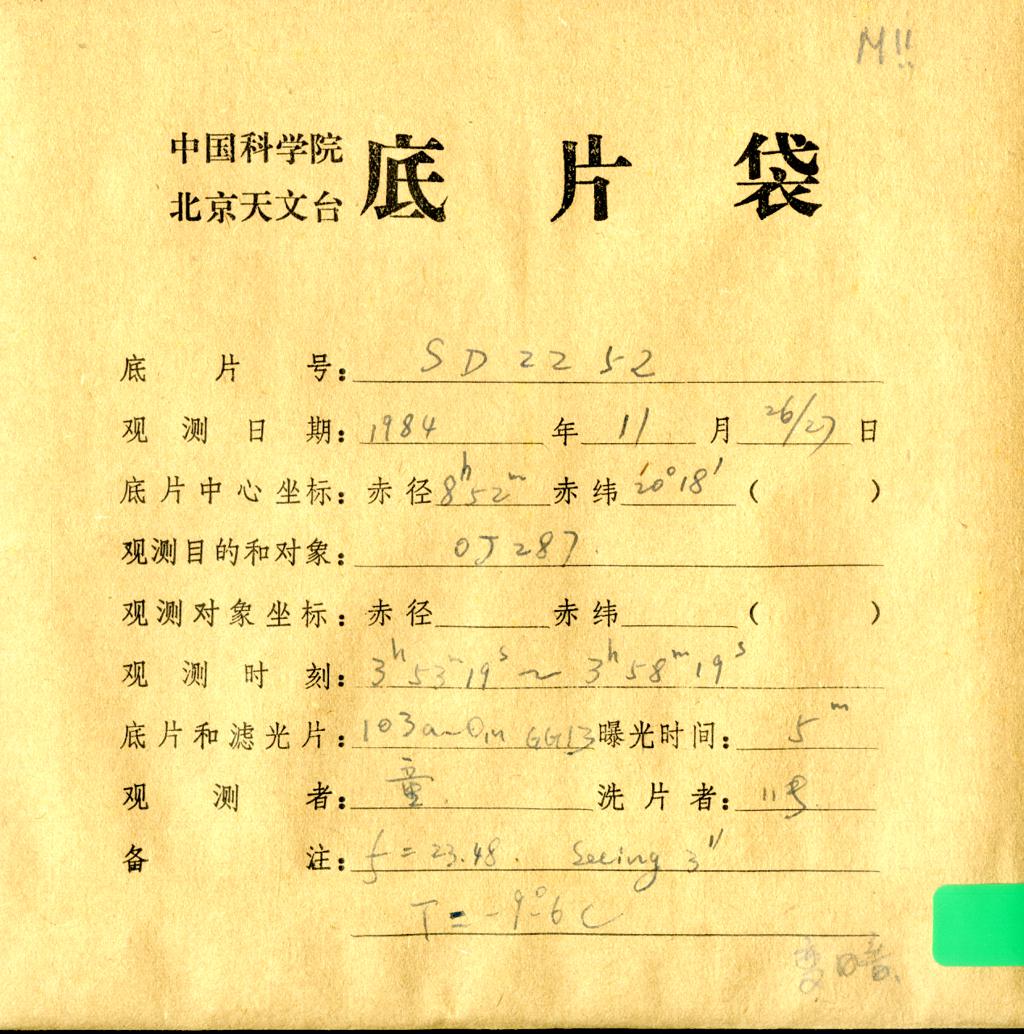 M!!
中国科学院
北京天文台 底片袋
底片号： SD2252
观测日期：1984年11月26/27日
底片中心坐标：赤径8ʰ52ᵐ 赤纬20°18′（ ）
观测目的和对象： OJ287.
观测对象坐标：赤径 赤纬 （ ）
观测时刻：3ʰ53ᵐ19ˢ～3ʰ58ᵐ19ˢ
底片和滤光片：103a-O GG13 曝光时间：5ᵐ
观测者：童. 洗片者：
备注：f=23.48. Seeing 3″
T=-9°.6C
变暗.